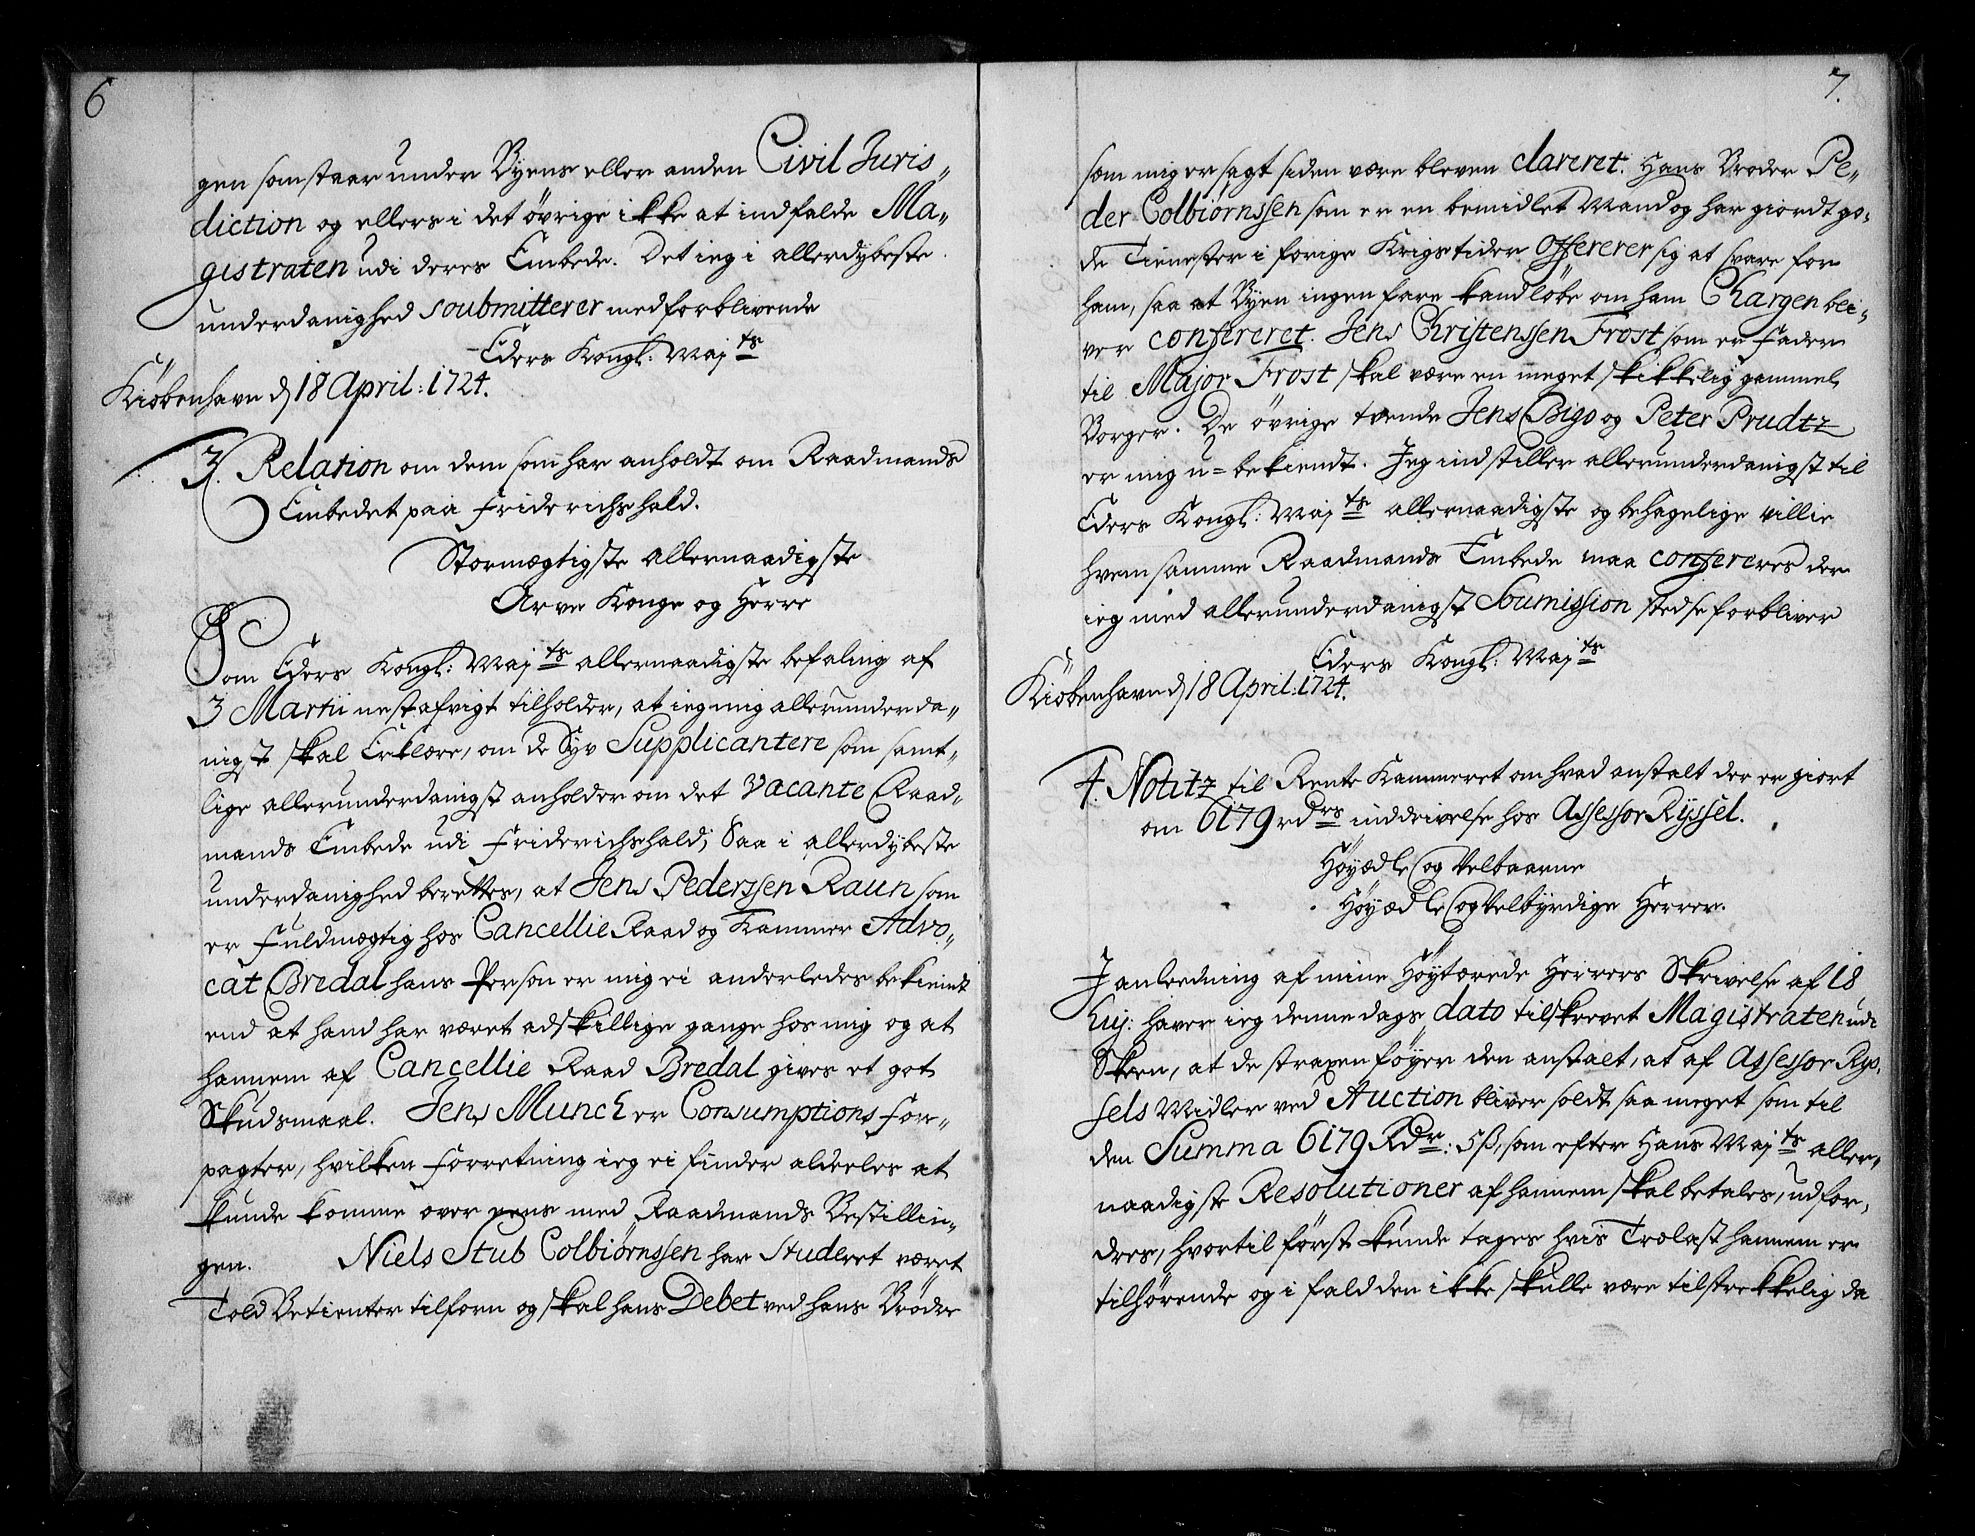 6
gen som staar under Byens eller anden Civil Juris„
diction og ellers i det øvrige ikke at indfalde Ma„
gistraten udi deres Embede. Det ieg i allerdybeste
underdanighed soubmitterer med forblivende
Eders Kongl: Maj ts
Kiøbenhavn d 18 April: 1724.
3. Relation om dem som har anholdt om Raadmands
Embedet paa Friderichshald.
Stormægtigste allernaadigste
Arve Konge og Herre
Som Eders Kongl: Maj ts allernaadigste befaling af
3 Martii nestafvigt tilholder, at ieg mig allerunderda„
nigst skal Erklære, om de Syv Supplicantere som samt„
lige allerunderdanigst anholder om det Vacante Raad„
mands Embede udi Friderichshald; Saa i allerdybeste
underdanighed berettes, at Jens Pederssen Raun som
er Fuldmægtig hos Cancellie Raad og Kammer Advo„
cat Bredal hans Person er mig ei anderledes bekiendt
end at hand har været adskillige gange hos mig og at
hannem af Cancellie Raad Bredal gives et got
Skudsmaal. Jens Munch er Consumptions For„
pagter, hvilken Forretning ieg ei finder aldeeles at
kunde komme over eens med Raadmands Bestillin„
gen. Niels Stub Colbiørnssen har Studeret været
Told Betienter tilforn og skal hans Debet ved hans Brøde
7.
som mig er sagt siden være bleven clareret. Hans Broder Pe„
der Colbiørnssen som er en bemidlet Mand og har giordt go„
de Tienester i forige Krigstider offererer sig at svare for
ham, saa at Byen ingen fare kand løbe om ham Chargen bli„
ver confereret. Jens Christenssen Frost som er Fader
til Major Frost skal være en meget skikkelig gammel
Borger. De øvrige tvende Jens Bigo og Peter Prudtz
er mig u=bekiendt. Jeg indstiller allerunderdanigst til
Eders Kongl: Maj ts allernaadigste og behagelige villie
hvem samme Raadmands Embede maa confereres der
ieg med allerunderdanigst Soumission stedse forbliver
Eders Kongl: Maj ts
Kiøbenhavn d 18 April: 1724.
4. Notitz til Rente Kammeret om hvad anstalt der er giort
om 6179 rdrs inddrivelse hos Assessor Ryssel.
Høyædle og Velbaarne
Høyædle og Velbyrdige Herrer.
I anleedning af mine Høytærede Herrers Skrivelse af 18
huj: haver ieg denne dags dato tilskrevet Magistraten udi
Skeen, at de strax en føyer den anstalt, at af Assessor Rys„
sels Midler ved Auction bliver soldt saa meget som til
den Summa 6179 Rdr: 5ß, som efter Hans Maj ts aller„
naadigste Resolutioner af hannem skal betales, udfor„
dres, hvortil først kunde tages hvis Trælast hannem er
tilhørende og i fald den ikke skulle være tilstrekkelig da